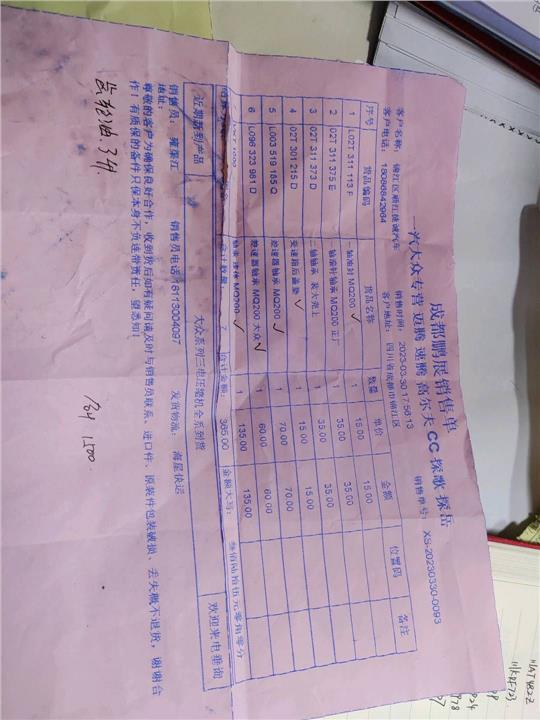 成都鹏展销售单
一汽大众专营 迈腾 速腾 高尔夫 CC 探歌 探岳
客户名称： 锦江区顺江捷诚汽车 销售时间： 2023-03-30 17:56:13 销售单号： XS-20230330-0093
客户电话： 18086842964 客户地址： 四川省成都市锦江区
序号 货品编码 货品名称 数量 单价 金额 位置码 备注
1 L02T 311 113 F 一轴滚针 MQ200 1 15.00 15.00
2 02T 311 375 E 一轴滚针轴承 MQ200 正厂 1 35.00 35.00
3 02T 311 373 D 二轴轴承 装大壳上 1 35.00 35.00
4 02T 301 215 D 变速箱后盖垫 1 15.00 15.00
5 L003 519 185 Q 差速器轴承 MQ200 1 70.00 70.00
6 L096 323 961 D 差速器轴承 MQ200 大众 1 60.00 60.00
轴承 MQ200 1 135.00 135.00
合计数量： 7 合计金额： 365.00 金额大写： 叁佰陆拾伍元零角零分
近期新到产品 大众系列三电压缩机全系到货 欢迎来电垂询
销售员： 江 销售员电话：18113004097 发货物流： 海星快运
地址：
尊敬的客户为确保良好合作，收到货后如有疑问请及时与销售员联系、进口件、原装件包装破损、丢失概不退货，谢谢合
作！有质保的备件只保本身不负连带责任，望悉知！
齿轮油 3升
1500